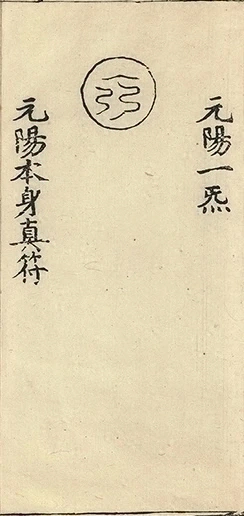 元陽一炁
元陽本身真符